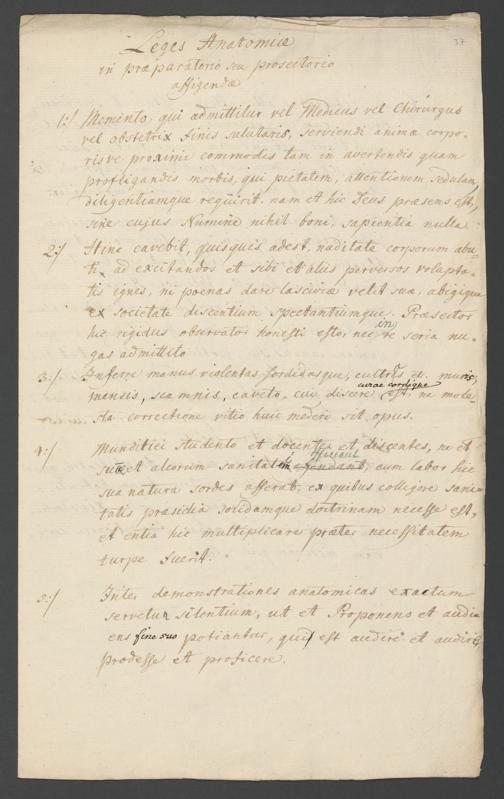 37
Leges Anatomicæ
in præparatorio seu prosectorio
affigendæ
1:/ Memento, qui admittitur vel Medicus vel Chirurgus
vel obstetrix finis salutaris, serviendi animæ corpo-
risve proximi commodes tam in avertendis quam
profligandis morbis, qui pietatem, attentionem sedulam,
diligentiamque requirit, nam et hic Deus præsens est,
sine cujus Numine nihil boni, sapientia nulla
2:/ Hinc cavebit, quisquis adest, nuditate corporum abu-
ti ad excitandos et sibi et aliis perversos volupta-
tis ignes, ni poenas dare lasciviæ velit sua, abigique
ex societate discentium spectantiumque. Præsector
hic rigidus observator honesti esto, nec in re seria nu-
gas admittito
3:/ Inferre manus violentas sordidasque, cultris et muris,
mensis, scamnis, caveto, cui discere curæ cordique est, ne mole-
sta correctione vitio huic mederi sit opus.
4:/ Munditiei studento et docentes et discentes, ne et
suæ et aliorum sanitati officiant, cum labor hic
sua natura sordes afferat, ex quibus colligere sani-
tatis præsidia solidamque doctrinam necesse est,
et entia hic multiplicare præter necessitatem
turpe fuerit.
5:/ Inter demonstrationes anatomicas exactum
servetur silentium, ut et Proponens et audi-
ens fine suo potiantur, qui est audere et audiri,
prodesse et proficere.